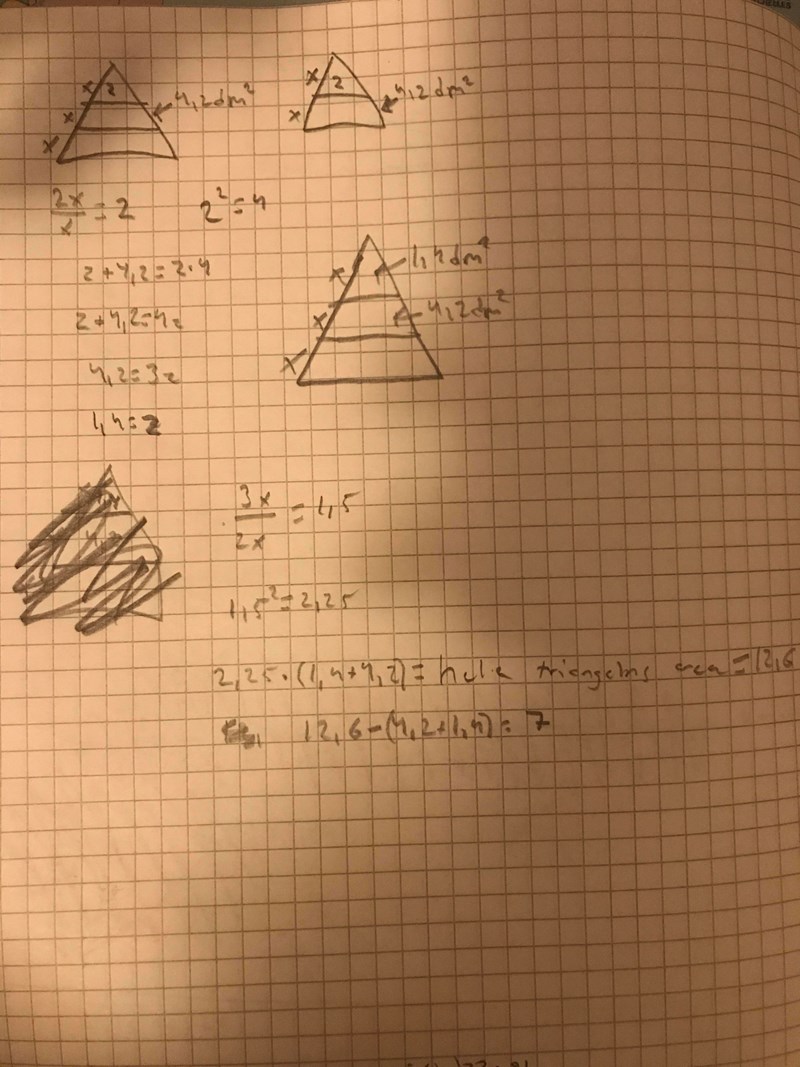 x z 4,2 dm²
x
x
x z 4,2 dm²
x
2x/x = 2 2² = 4
z + 4,2 = z·4
z + 4,2 = 4z
4,2 = 3z
1,4 = z
x 1,4 dm²
x 4,2 dm²
x
3x/2x = 1,5
1,5² = 2,25
2,25·(1,4+4,2) = hela triangelns area = 12,6
12,6-(4,2+1,4) = 7